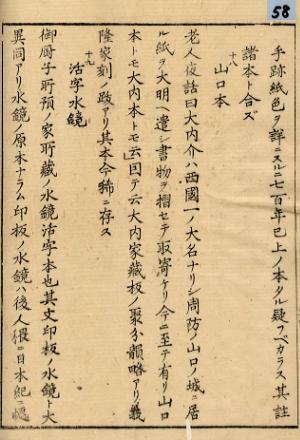 58
手跡紙色ヲ詳ニスルニ七百年已上ノ本タル疑フベカラス其註
諸本ト合ズ
十八 山口本
老人夜話曰大内介ハ西國一ノ大名ナリシ周防ノ山口ノ城ニ居
ル紙ヲ大明ヘ遣シ書物ヲ摺セテ取寄ケリ今ニ至テ有リ山口
本トモ大内本トモ云因テ云大内家藏板ノ聚分韻略アリ義
隆家刻ノ跋アリ其本今稀ニ存ス
十九 活字水鏡
御厨子所預ノ家所藏ノ水鏡活字本也其文印板ノ水鏡ト大
異同アリ水鏡ノ原本ナラム印板ノ水鏡ハ後人猥ニ日本紀ニ